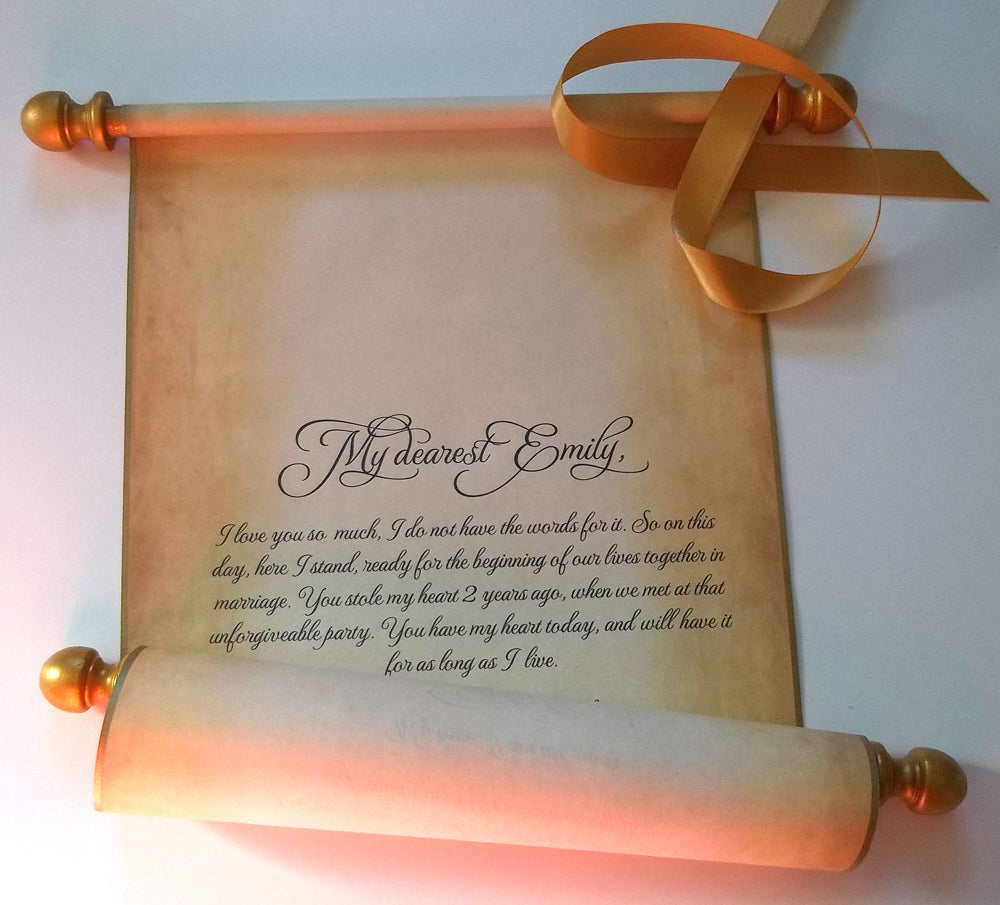 My dearest Emily,
I love you so much, I do not have the words for it. So on this
day, here I stand, ready for the beginning of our lives together in
marriage. You stole my heart 2 years ago, when we met at that
unforgiveable party. You have my heart today, and will have it
for as long as I live.